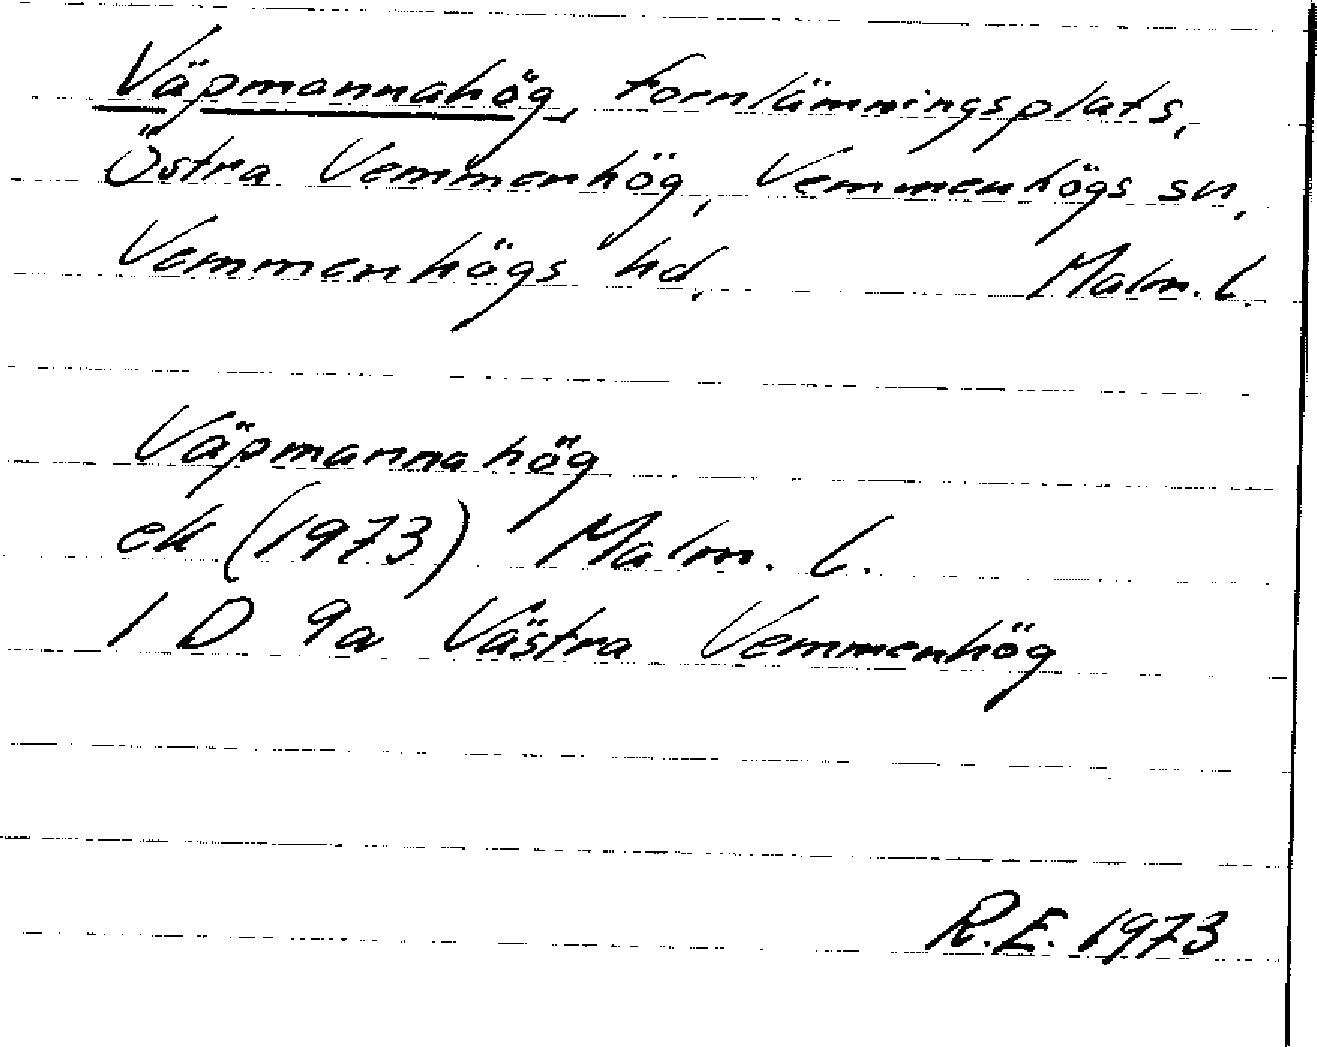 Väpmannahög, fornlämningsplats,
Östra Vemmenhög, Vemmenhögs sn,
Vemmenhögs hd, Malm. l.
Väpmannahög
ek (1973) Malm. l.
1 D 9a Västra Vemmenhög
R.E. 1973